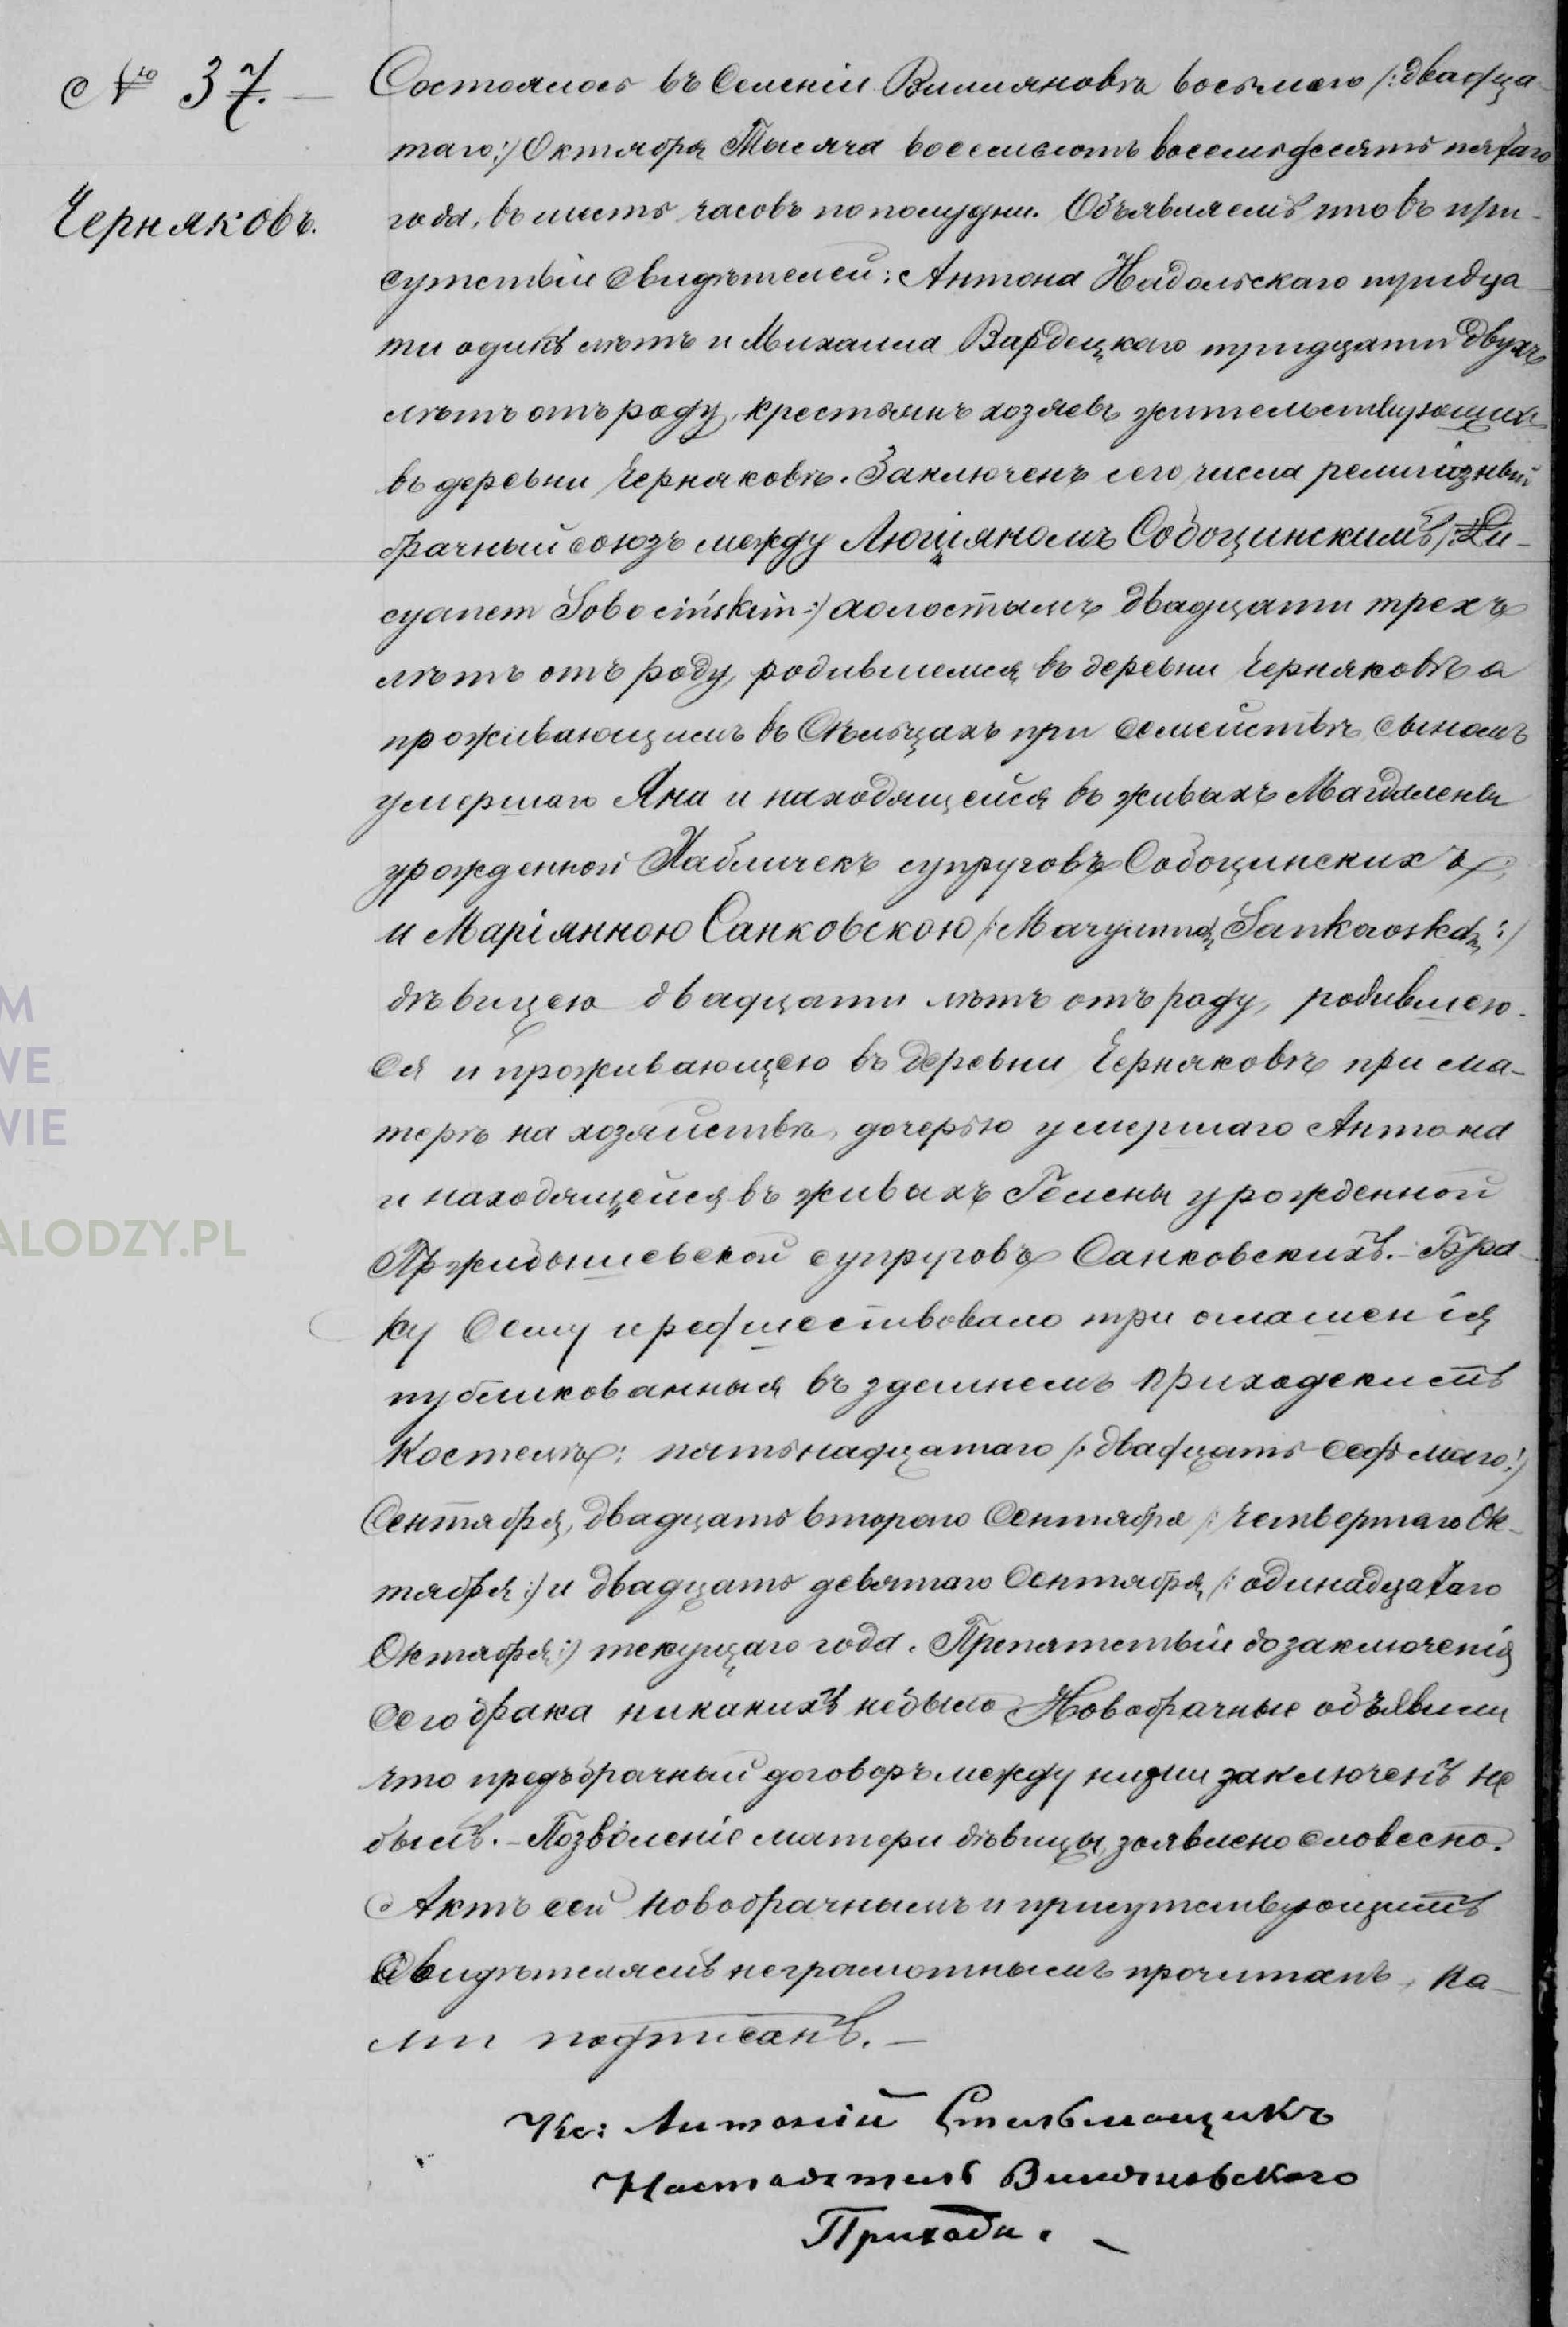 № 37. —
Черняковъ.
Состоялось въ Селеніи Вилляновѣ восьмаго /:двадца-
таго:/ Октября Тысяча восемьсотъ восемьдесятъ пятаго
года, въ шесть часовъ пополудни. Объявляемъ что въ при-
сутствіи свидѣтелей: Антона Надольскаго тридца-
ти одинъ лѣтъ и Михаила Вардецкаго тридцати двухъ
лѣтъ отъ роду, крестьянъ хозяевъ жительствующихъ
въ деревни Черняковѣ. Заключенъ сего числа религіозный
брачный союзъ между Люціяномъ Собоцинскимъ /:Lu-
cyanem Sobocińskim:/ холостымъ двадцати трехъ
лѣтъ отъ роду, родившемся въ деревни Черняковѣ а
проживающимъ въ Сѣльцахъ при семействѣ, сыномъ
умершаго Яна и находящейся въ живыхъ Магдалены
урожденной Хабличекъ супруговъ Собоцинскихъ,
и Маріянною Санковскою /:Maryanną Sankowską:/
дѣвицею двадцати лѣтъ отъ роду, родившею-
ся и проживающею въ деревни Черняковѣ при ма-
терѣ на хозяйствѣ, дочерью умершаго Антона
и находящейся въ живыхъ Гелены урожденной
Пржибышевской супруговъ Санковскихъ. - Бра-
ку сему предшествовало три оглашенія
публикованныя въ здешнемъ приходскимъ
Костелѣ: пятьнадцатаго /:двадцать седьмаго:/
Сентября, двадцать втораго Сентября /:четвертаго Ок-
тября:/ и двадцать девятаго Сентября /:одинадцатаго
Октября:/ текущаго года. Препятствій до заключенія
сего брака никакихъ небыло Новобрачные объявили
что предъбрачный договоръ между ними заключенъ не
былъ. - Позволеніе матери дѣвицы, заявлено словесно.
Актъ сей новобрачнымъ и присутствующимъ
свидѣтелямъ неграмотнымъ прочитанъ, на-
ми подписанъ. —
Кс: Антоній
Настоятель Вилляновскаго
Прихода. -
M
WE
WIE
ALODZY.PL